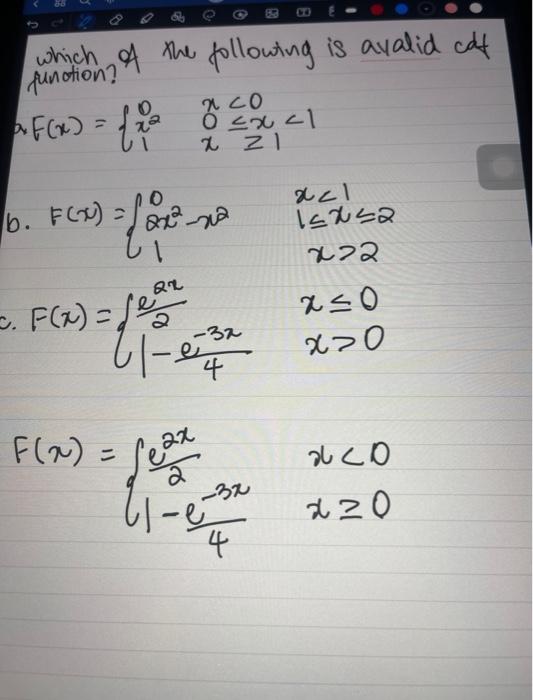 which of the following is a valid cdf
function?
a. F(x) = { 0 x < 0
x² 0 ≤ x < 1
1 x ≥ 1
b. F(x) = { 0 x < 1
2x² - x² 1 ≤ x ≤ 2
1 x > 2
c. F(x) = { e^{2x}/2 x ≤ 0
1 - e^{-3x}/4 x > 0
F(x) = { e^{2x}/2 x < 0
1 - e^{-3x}/4 x ≥ 0